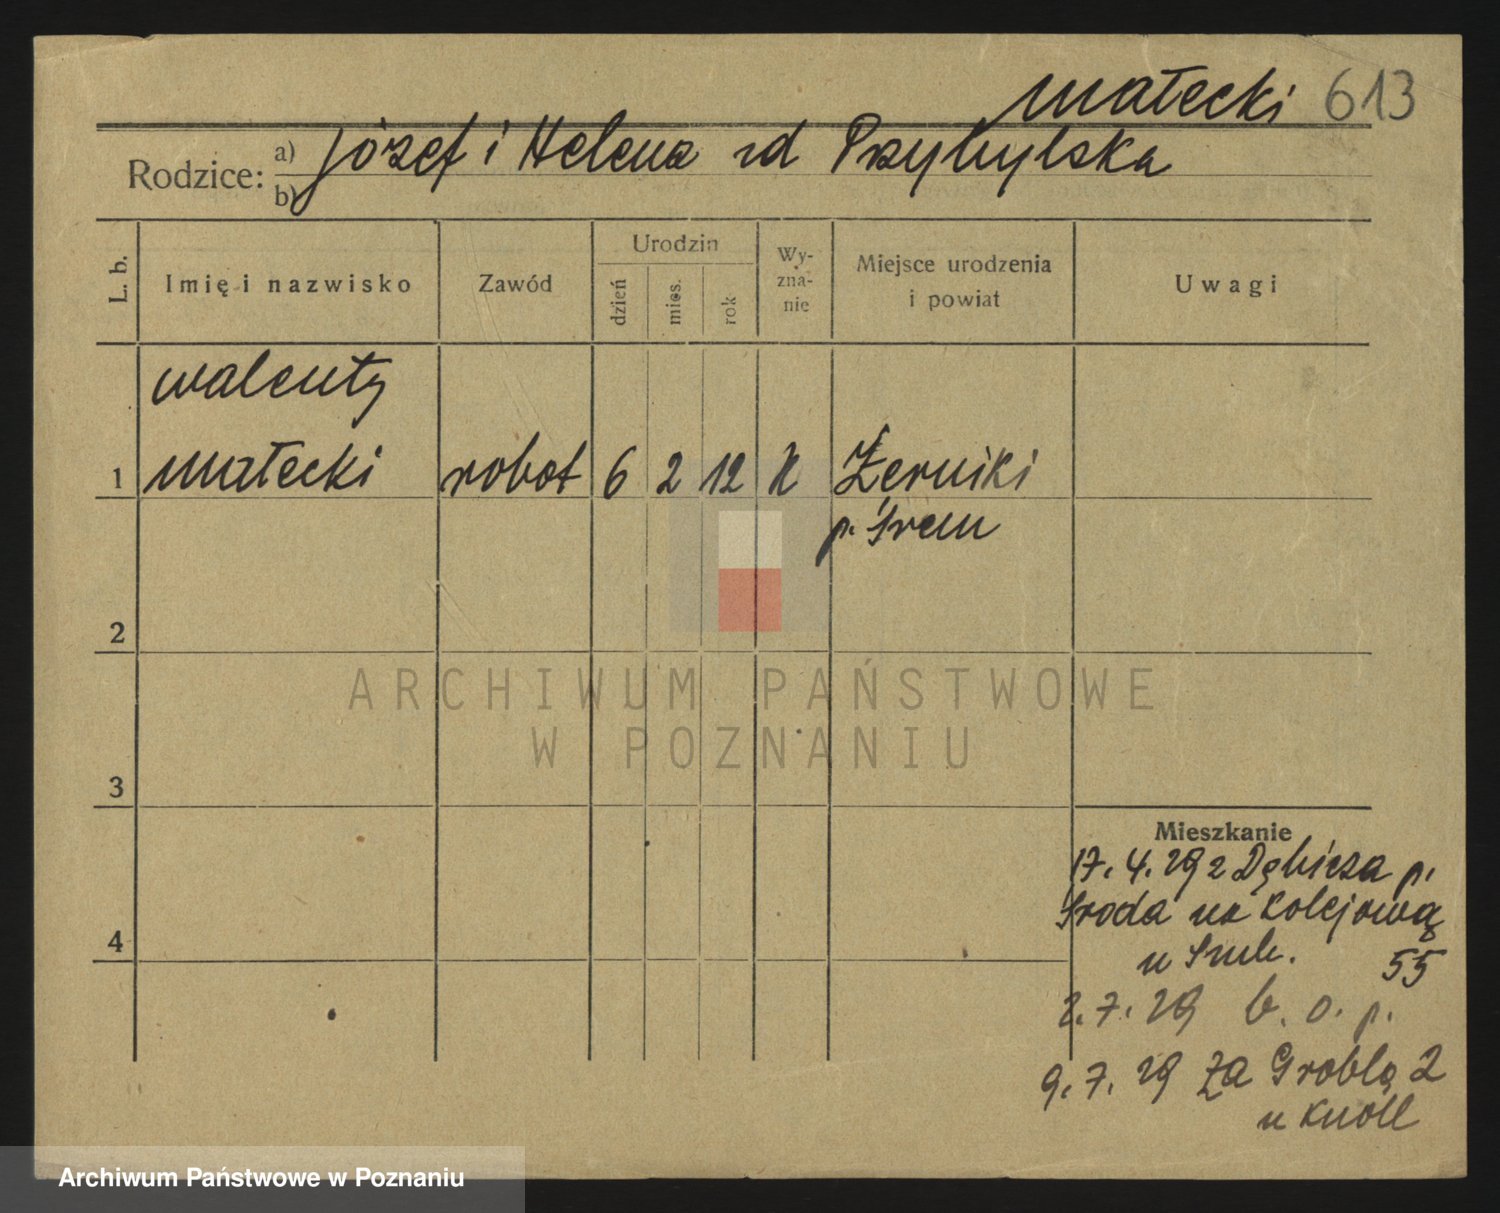 Małecki 613
Rodzice: a) Józef i Helena rd Przybylska
b)
L. b. Imię i nazwisko Zawód Urodzin dzień mies. rok Wy-zna-nie Miejsce urodzenia i powiat Uwagi
Walenty
1 Małecki robot 6 2 12 K Żerniki
p. Śrem
2
ARCHIWUM PAŃSTWOWE
W POZNANIU
3
Mieszkanie
17. 4. 29 z Dębicza p.
Środa na Kolejową
4
u 55
2. 7. 29 b. o. p.
9. 7. 29 Za Groblą 2
u Knoll
Archiwum Państwowe w Poznaniu